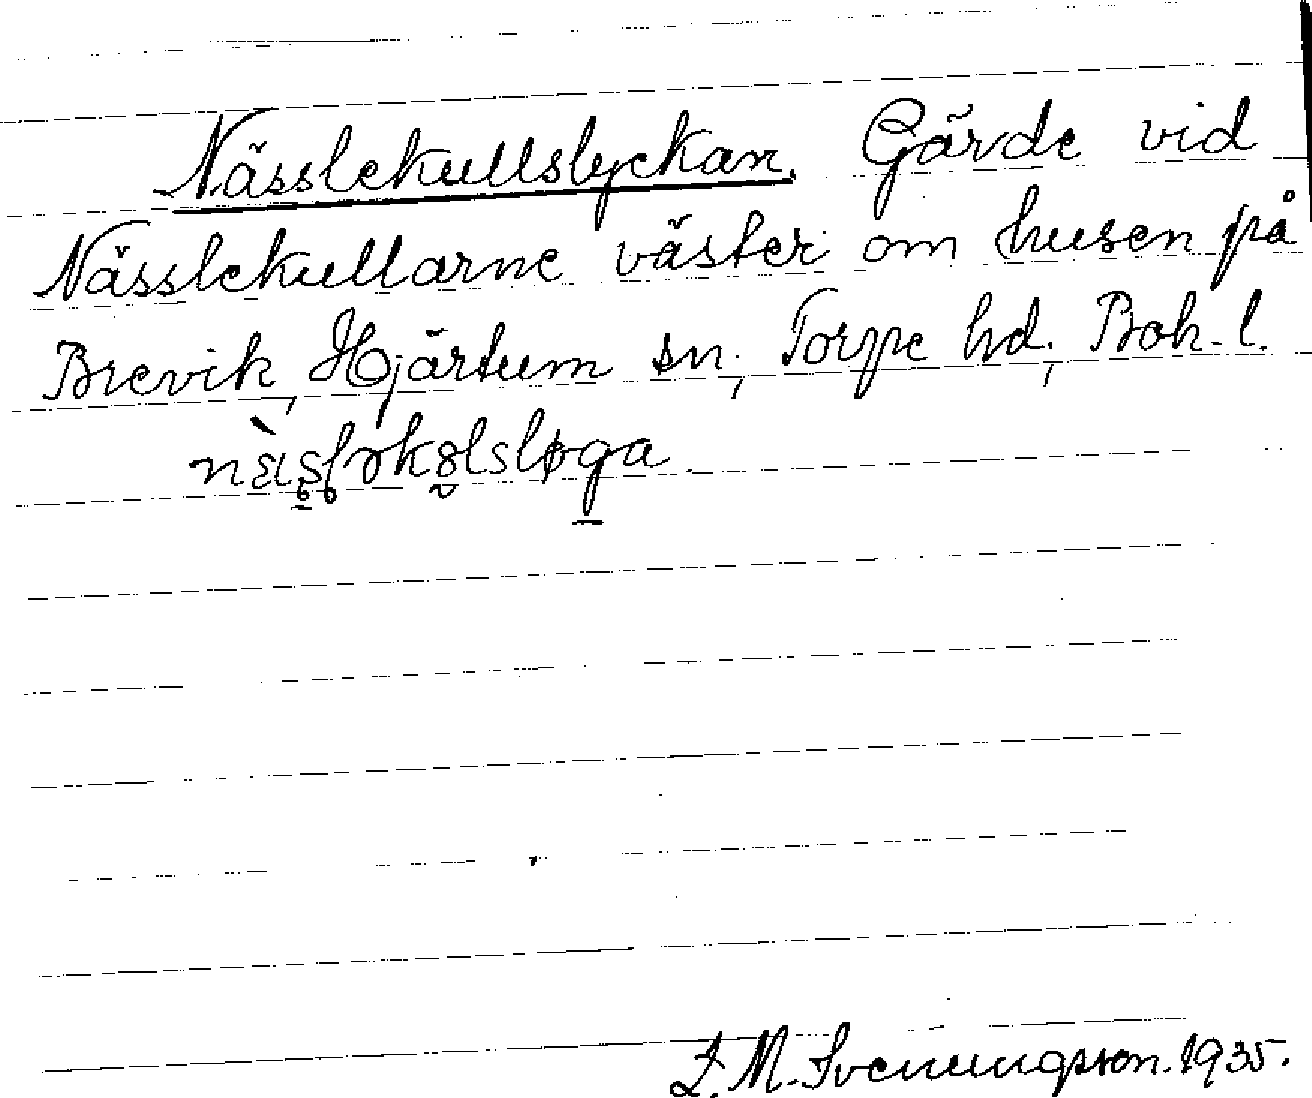 Nässlekullslyckan. Gärde vid
Nässlekullarne väster om husen på
Brevik, Hjärtum sn, Torpe hd, Boh. l.
L. M. Svenungsson. 1935.